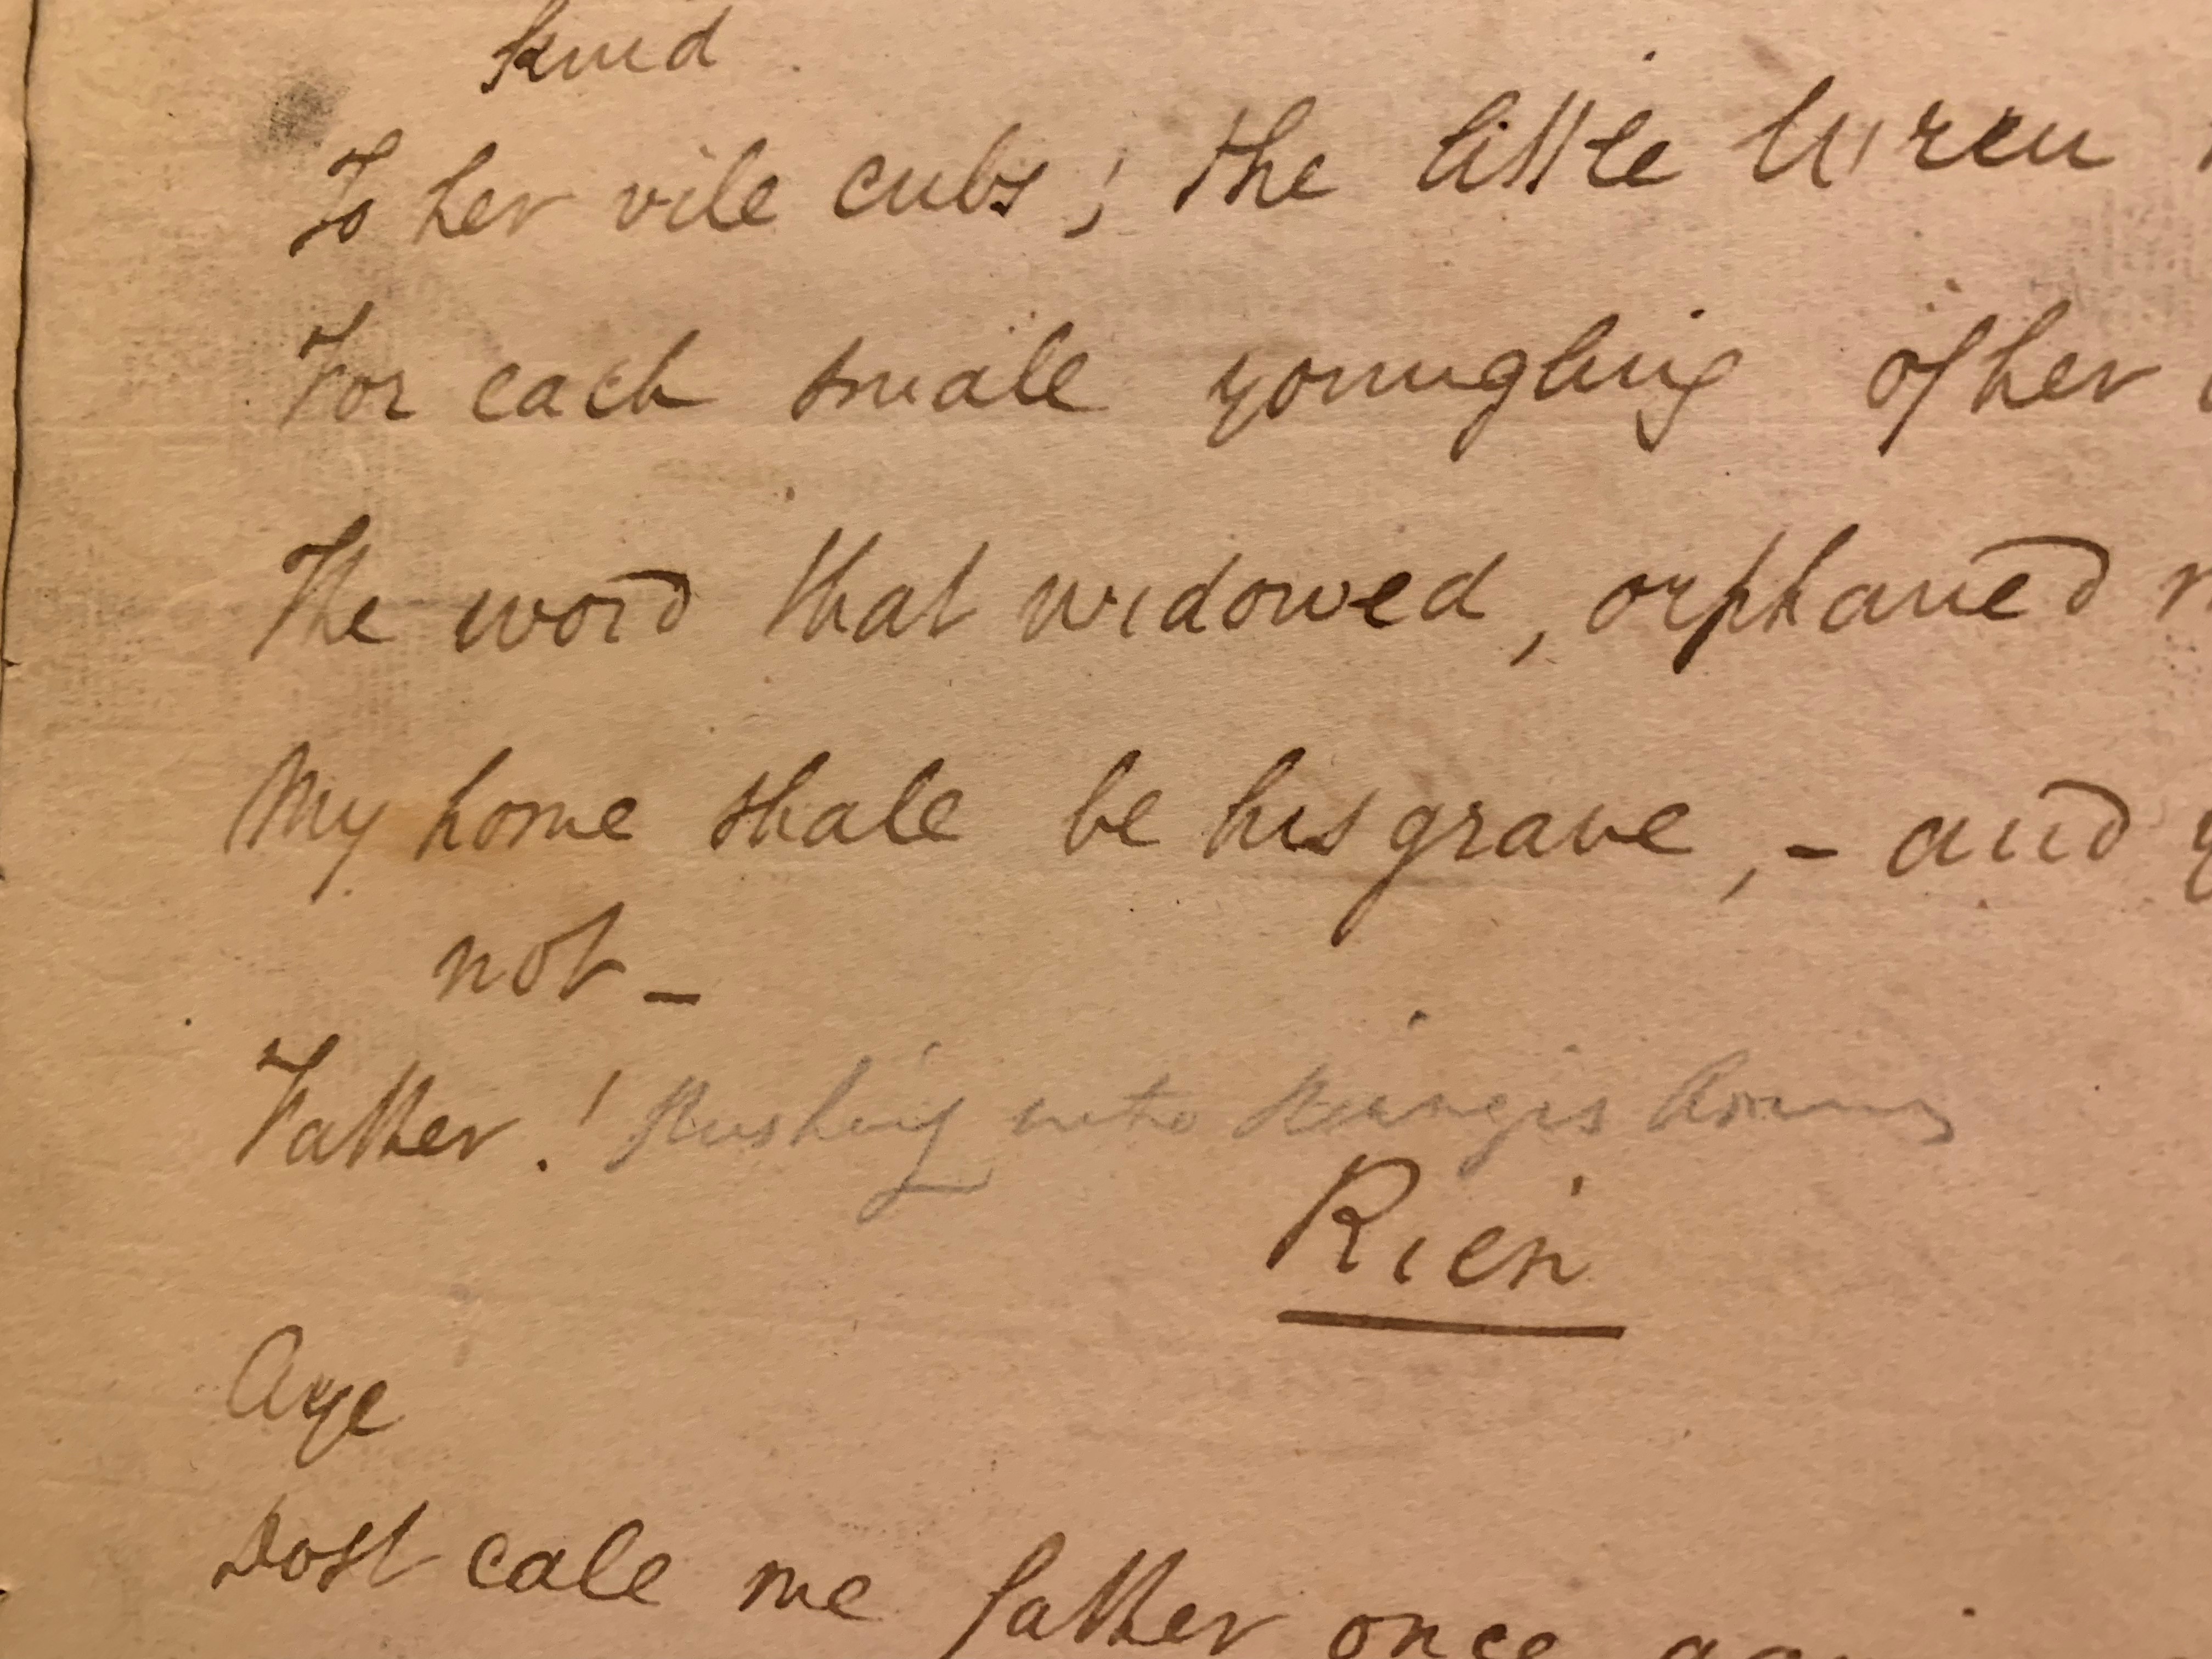 kind
To her vile cubs; the little Wren
For each small youngling of her
The word that widowed, orphaned
My home shall be his grave, - and
not -
Father! Rushing into Rienzi's Arms
Rien
Aye
Dost call me father once